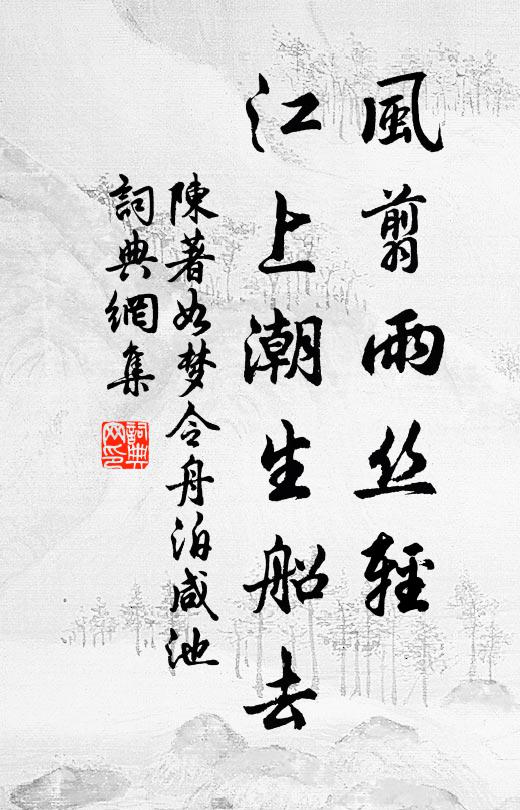 風翦雨丝輕
江上潮生船去
陳著如梦令舟泊咸池
詞典網集
詞典网印